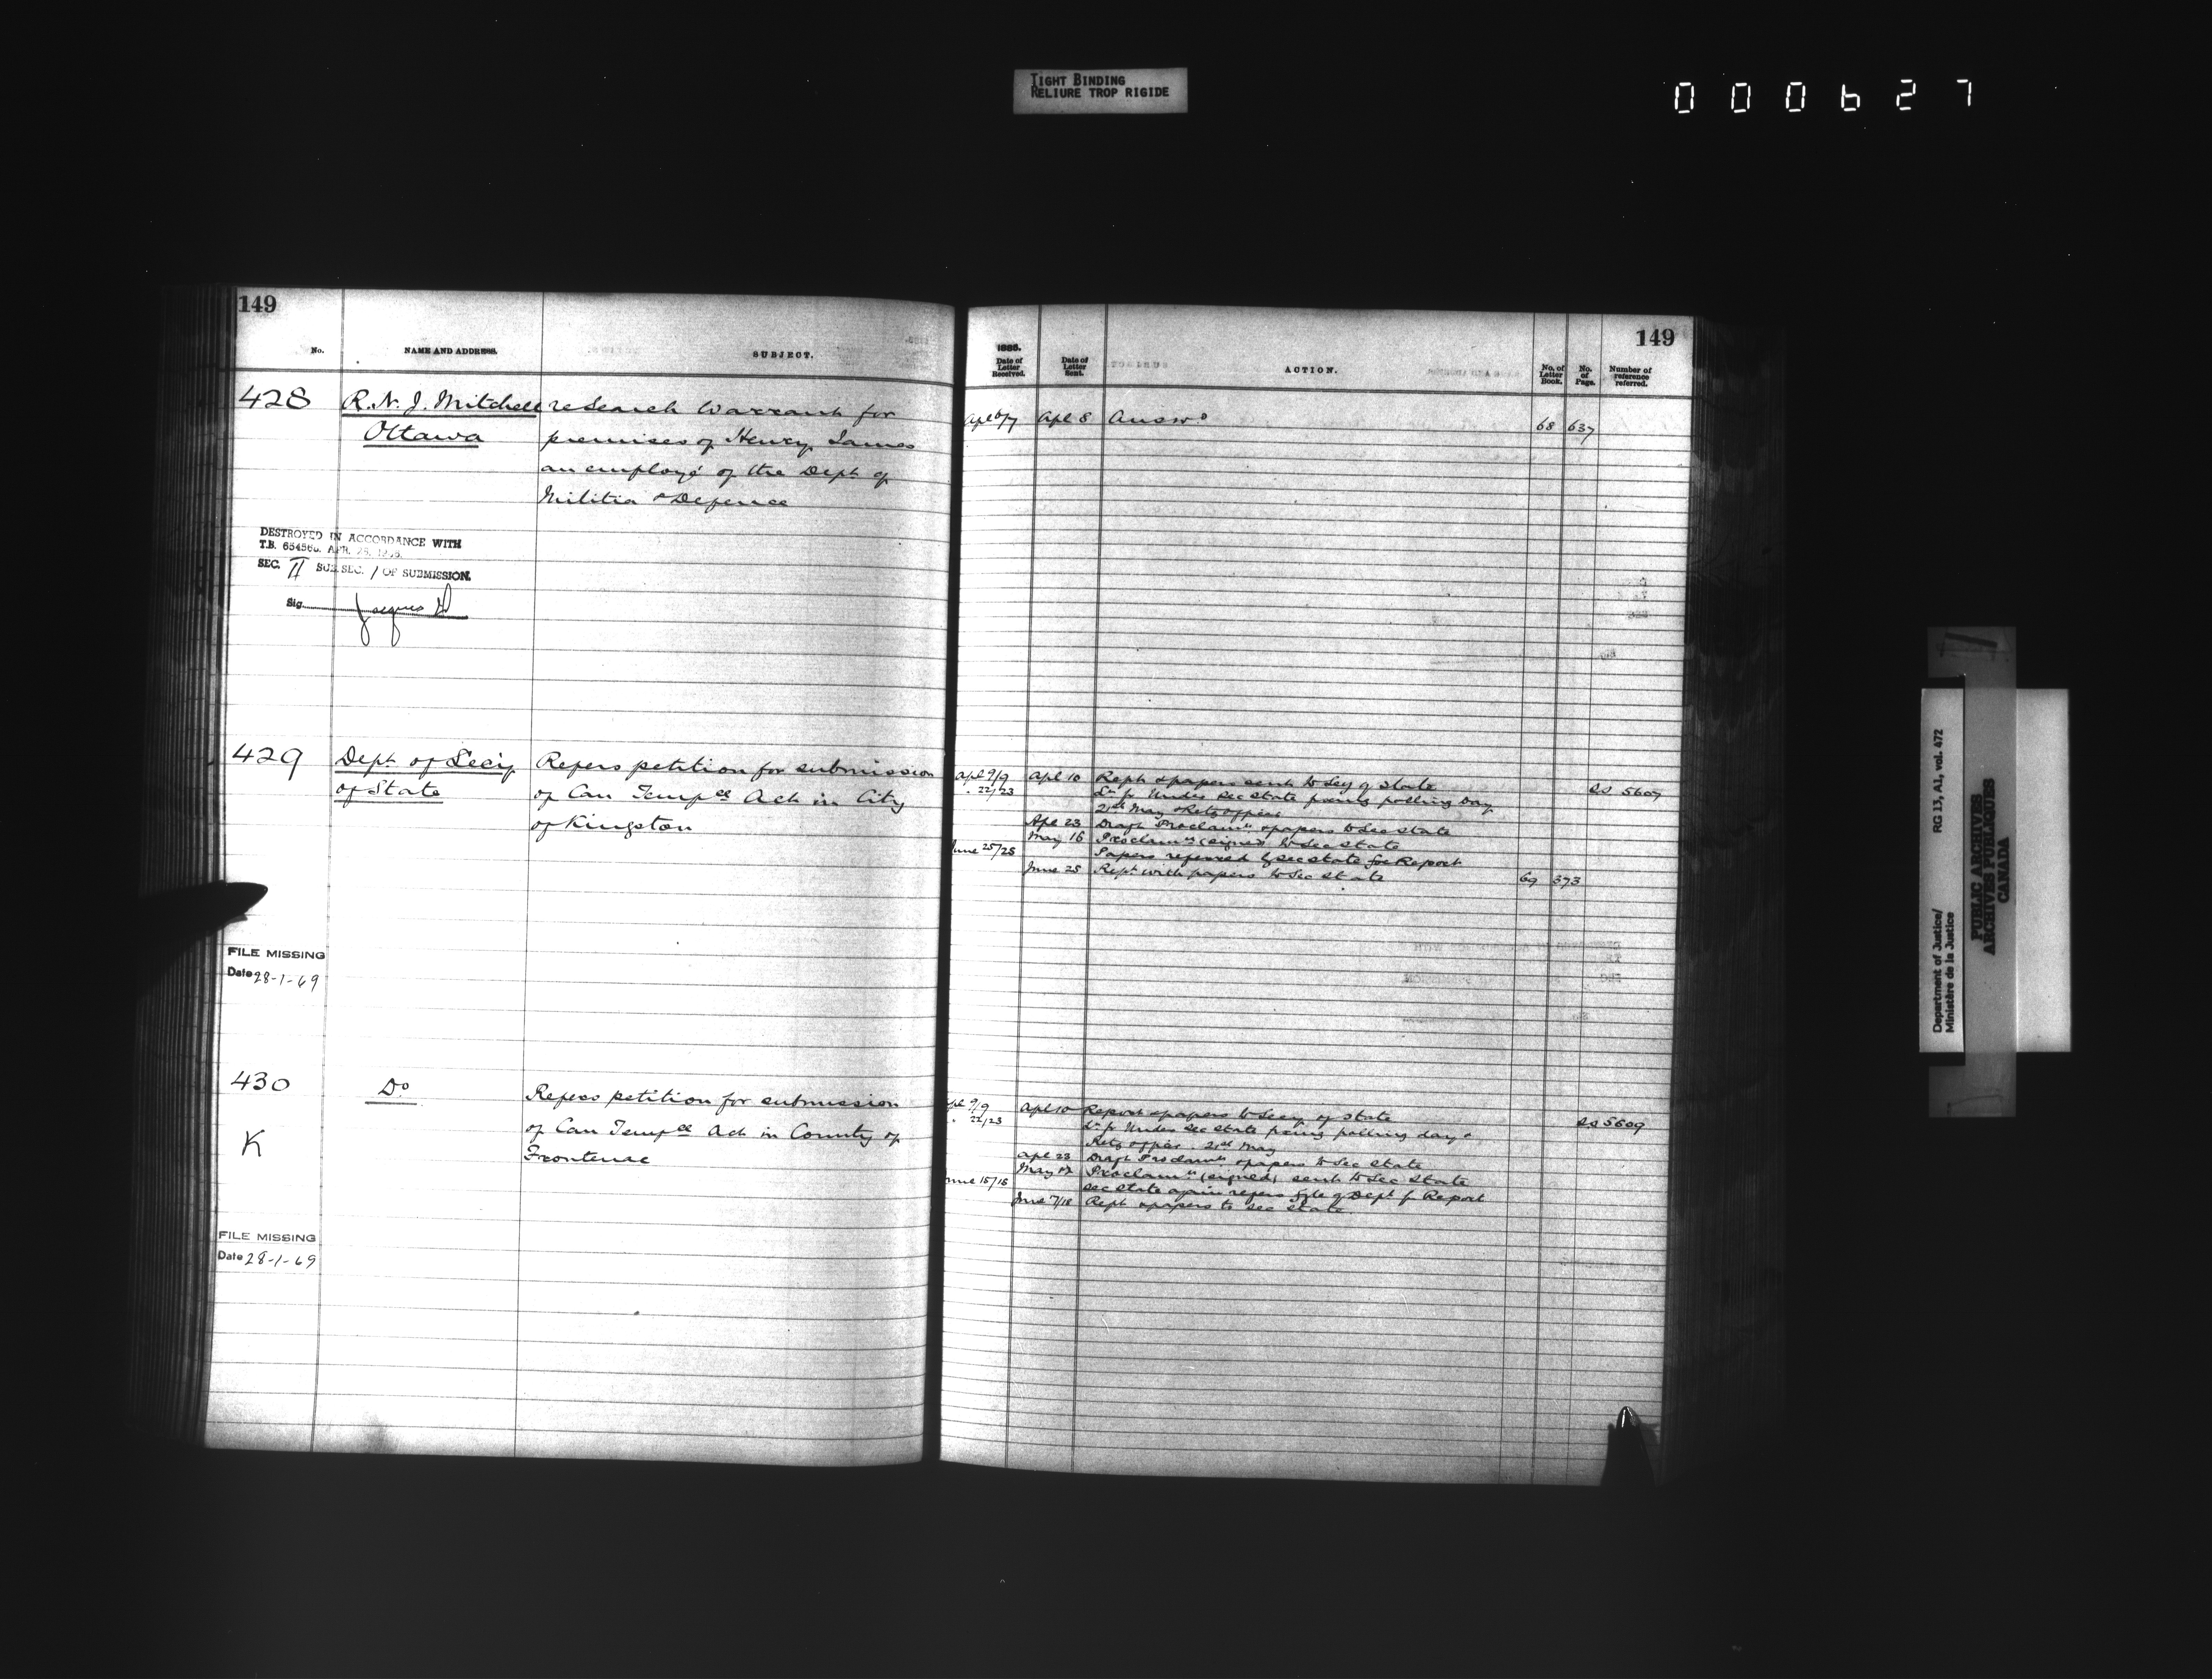 TIGHT BINDING
RELIURE TROP RIGIDE
000627
149
No.
NAME AND ADDRESS.
SUBJECT.
428
R. N. J. Mitchell
Ottawa
re Search Warrant for
premises of Henry James
an employé of the Dept of
Militia & Defence
DESTROYED IN ACCORDANCE WITH
T.B. 654560. APR.
SEC. II SUB. SEC. 1 OF SUBMISSION.
Sig. Jacques
429
Dept of Secy
of State
Refers petition for submission
of Can Tempce Act in City
of Kingston
FILE MISSING
Date 28-1-69
430
K
Do
Refers petition for submission
of Can Tempce Act in County of
Frontenac
FILE MISSING
Date 28-1-69
149
1885.
Date of Letter Received.
Date of Letter Sent.
ACTION.
No. of Letter Book.
No. of Page.
Number of reference referred.
Apl 6/7 Apl 8 Answd 68 637
Apl 9/9 Apl 10 Rept & papers sent to Secy of State SS 5607
" 22/23 Lr fr Under Sec State fixing polling day
21st May & Retg officer
Apl 23 Draft Proclamn & papers to Sec State
May 16 Proclamn (signed) to Sec State
June 25/25 Papers referred by Sec State for Report
June 25 Rept with papers to Sec State 69 373
Apl 9/9 Apl 10 Report & papers to Secy of State SS 5609
" 22/23 Lr fr Under Sec State fixing polling day &
Retg officer 21st May
Apl 23 Draft Proclamn & papers to Sec State
May Proclamn (signed) sent to Sec State
June 15/15 Sec State again refers file of Dept for Report
June 7/18 Rept & papers to Sec State
Department of Justice/
Ministère de la Justice
RG 13, A1, vol. 472
PUBLIC ARCHIVES
ARCHIVES PUBLIQUES
CANADA